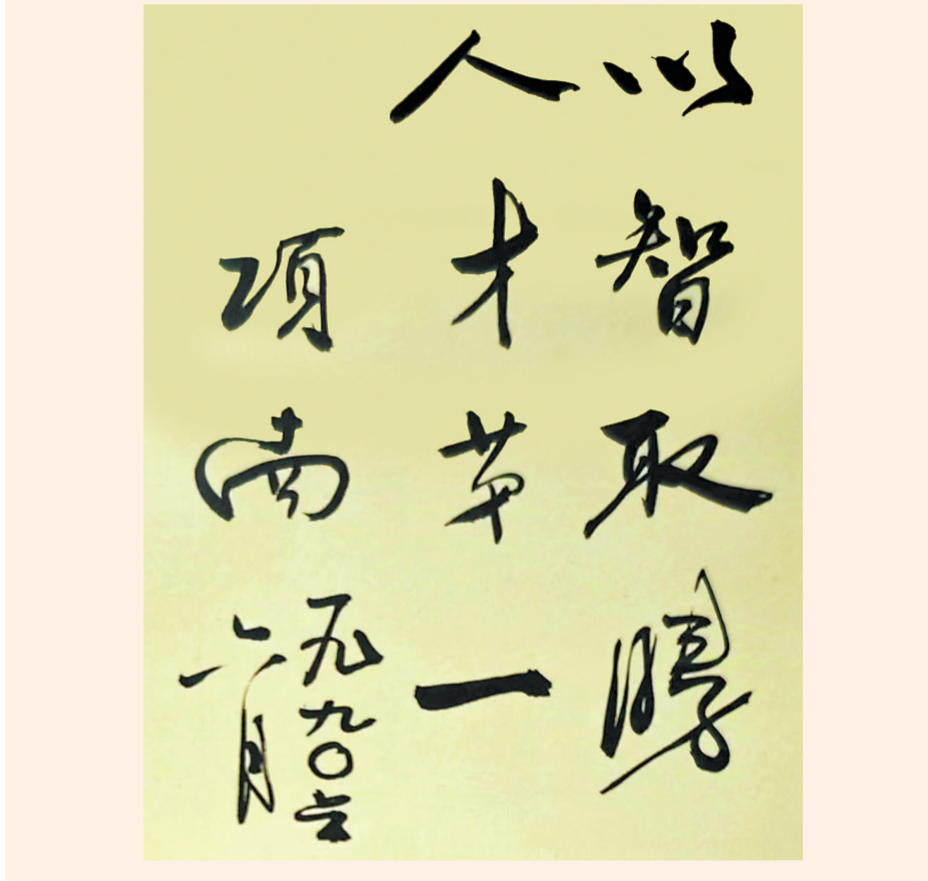 以智取勝
人才第一
項南
一九九〇年
六月